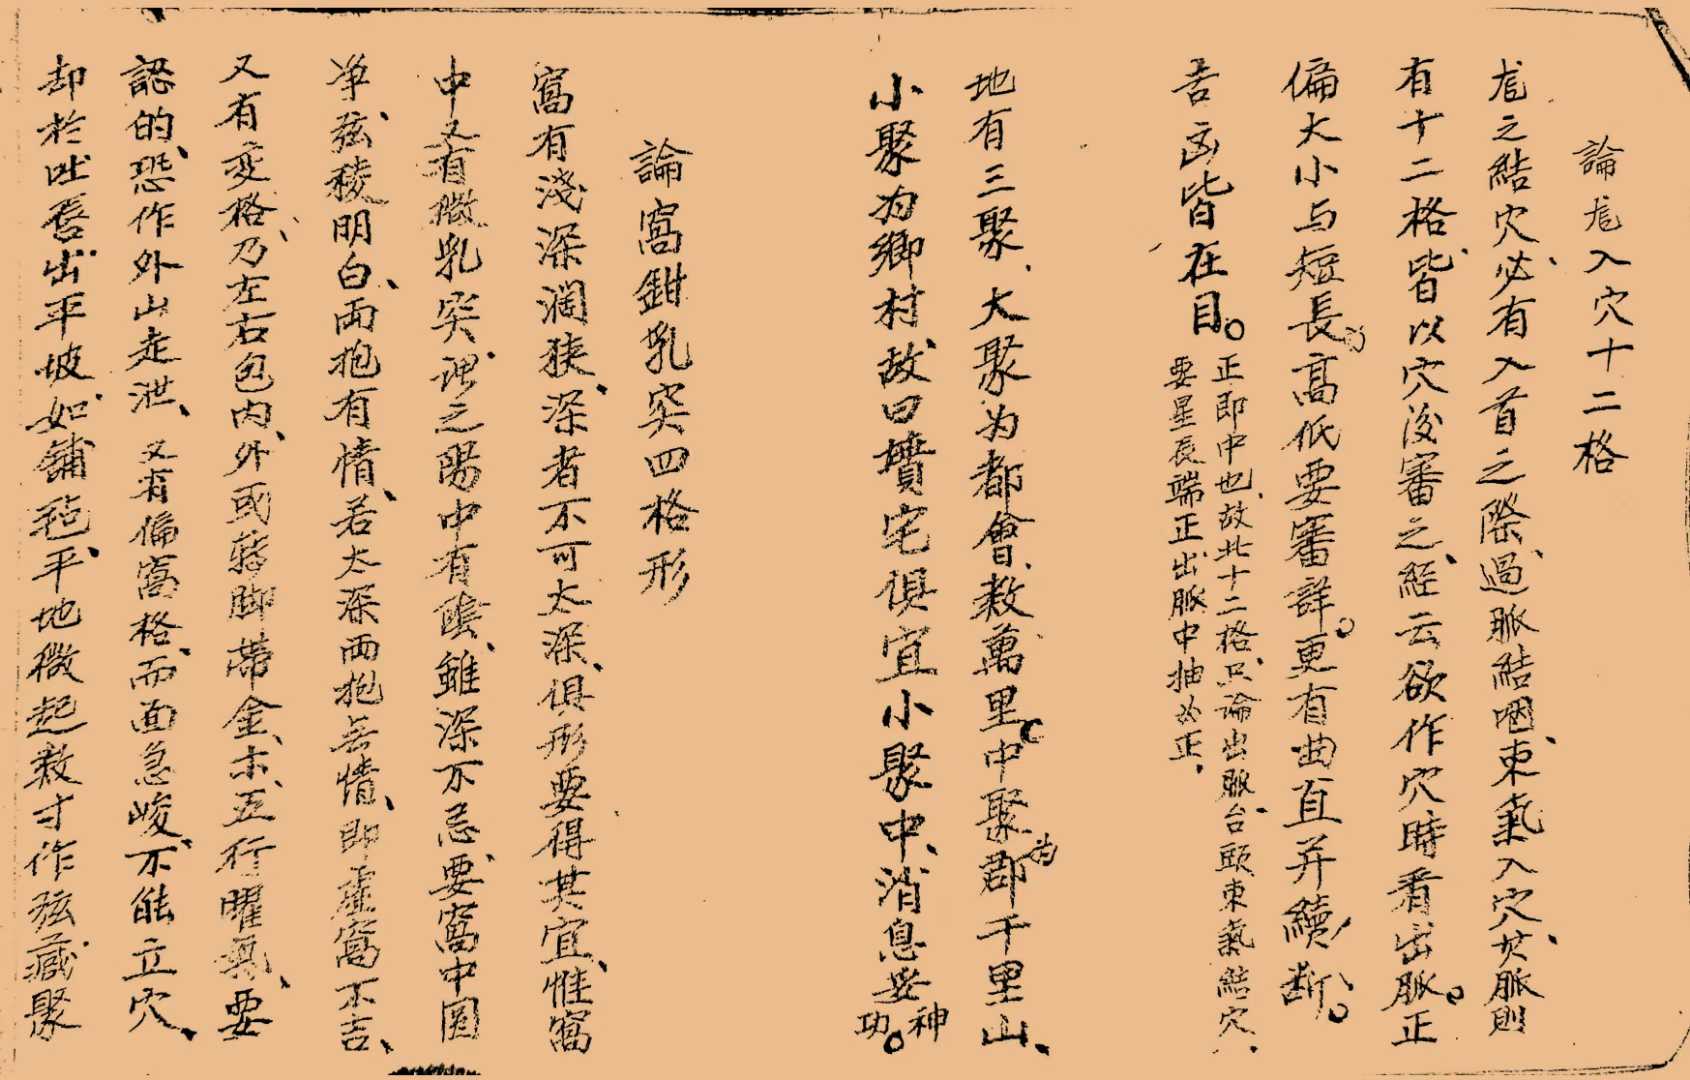 論龙入穴十二格
龙之結穴必有入首之際過脈結咽束氣入穴其脈則
有十二格皆以穴後審之經云欲作穴時看出脈正
偏大小与短長高低要審詳更有曲直并續断
吉凶皆在目
正即中也故此十二格只論出脈台頭束氣結穴
要星辰端正出脈中抽為正
地有三聚大聚为都會数萬里中聚为郡千里山
小聚为鄉村故曰墳宅俱宜小聚中消息妥神功
論窩鉗乳突四格形
窩有淺深濶狭深者不可太深俱形要得其宜惟窩
中又有微乳突谓之陽中有陰雖深不忌要窩中圓
净弦稜明白两抱有情若太深两抱无情即虚窩不吉
又有变格乃左右包内外或轉脚帶金木五行曜氣要
認的恐作外山走泄又有偏窩格而面急峻不能立穴
却於吐唇出平坡如鋪毡平地微起数寸作弦藏聚